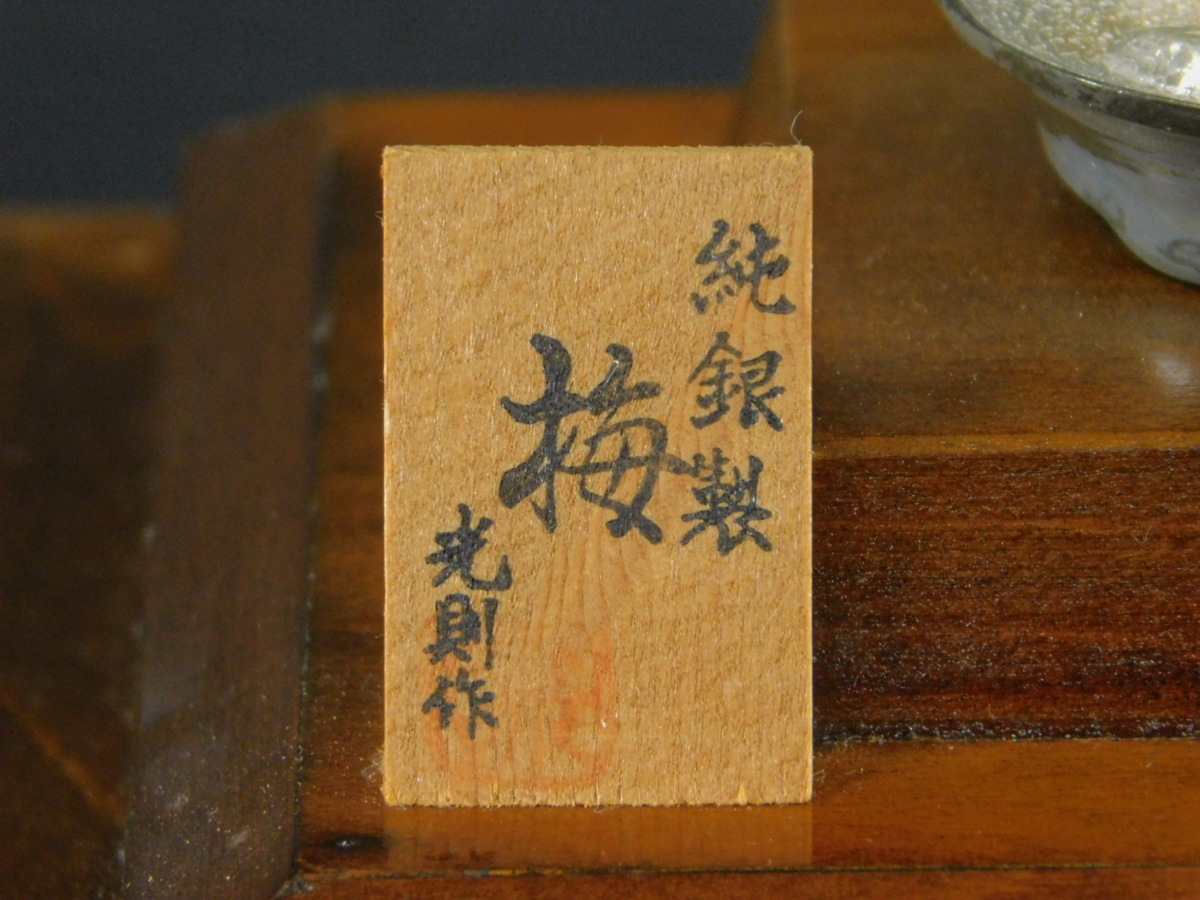 純銀製
梅
光則作